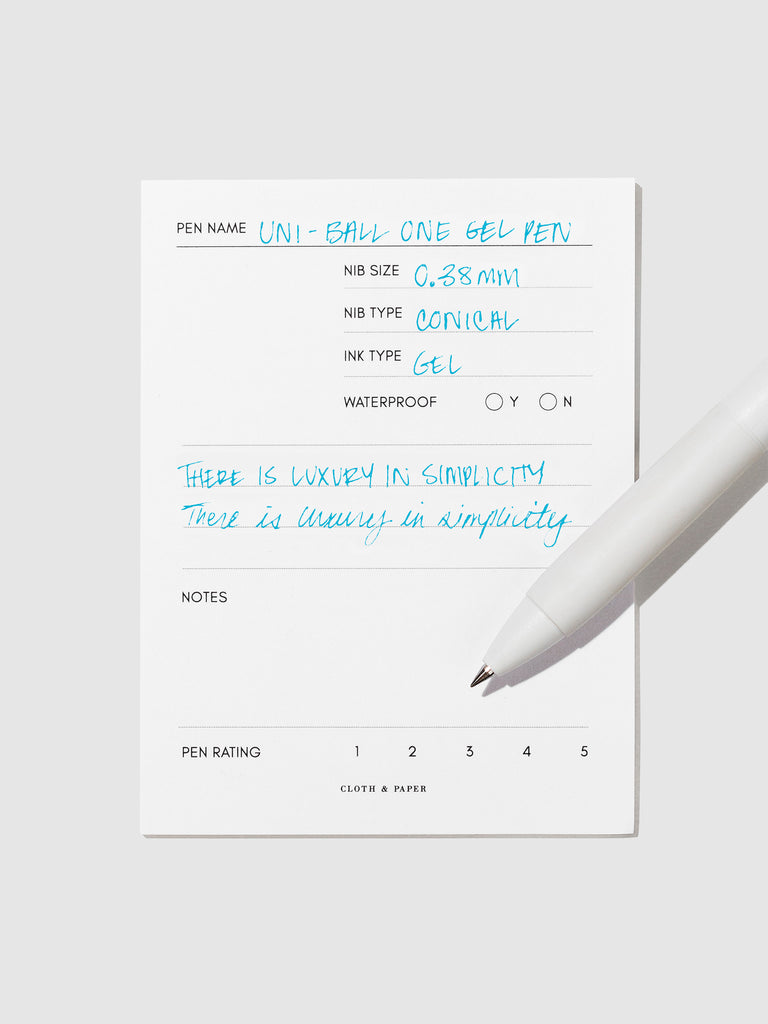 PEN NAME UNI-BALL ONE GEL PEN
NIB SIZE 0.38mm
NIB TYPE CONICAL
INK TYPE GEL
WATERPROOF Y N
THERE IS LUXURY IN SIMPLICITY
There is luxury in simplicity
NOTES
PEN RATING 1 2 3 4 5
CLOTH & PAPER